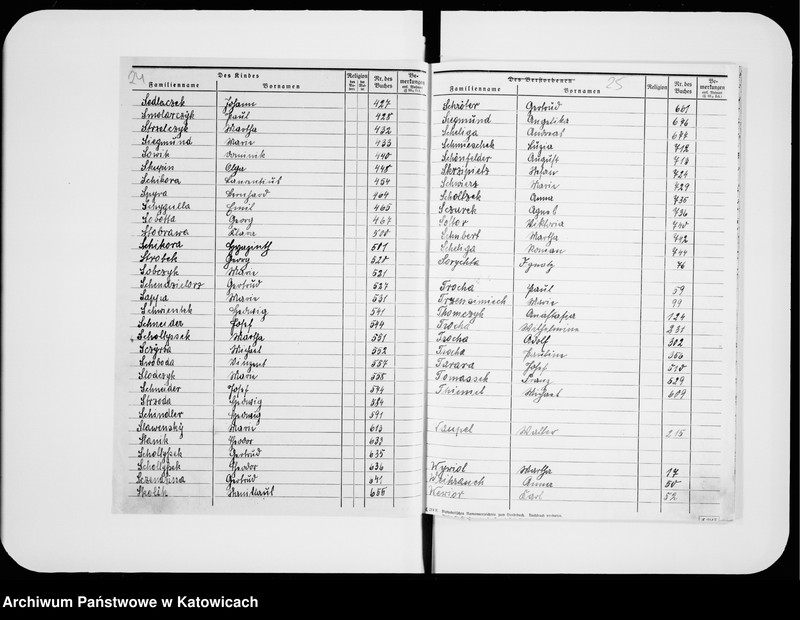 24
Des Kindes
Religion
Nr. des Buches
Bemerkungen
Familienname
Vornamen
Sedlaczek Johann 427
Smolarczyk Paul 428
Strzelczyk Martha 432
Siegmund Marie 433
Sowik Dominik 440
Skupin Olga 448
Schikora 454
Spyra Bernhard 464
Schygulla Emil 465
Sobotta Georg 467
Stobrawa Klara 500
Schikora Hyazinth 501
Strobek Georg 520
Sobczyk Marie 521
Schendzielorz Gertrud 527
Sappa Marie 531
Schwientek Hedwig 541
Schneider Josef 544
Schollyssek Martha 551
Sczyrba Michael 552
Swoboda Vinzent 557
Slodczyk Marie 558
Schneider Josef 574
Strzoda Hedwig 584
Schindler Hedwig 591
Slawensky Marie 613
Stanik Theodor 633
Schollyssek Gertrud 635
Schollyssek Theodor 636
Sczendzina Gertrud 641
Skolik Stanislaus 655
25
Des Verstorbenen
Familienname
Vornamen
Religion
Nr. des Buches
Bemerkungen
Schröter Gertrud 661
Siegmund Angelika 676
Scheliga Andreas 677
Schmieschek Luzia 712
Schönfelder August 713
Skrzipietz Stefan 724
Schwierz Marie 729
Scholtysek Anna 735
Sczurek Agnes 736
Viktoria 740
Schubert Martha 742
Scheliga Roman 744
Sorychta Ignatz 76
Trocha Paul 59
Marie 99
Thomczyk Anastasia 124
Trocha Wilhelmine 231
Trocha Adolf 302
Trocha Pauline 356
Tarara Josef 510
Tomassek Franz 529
Thiemel Michael 609
Walter 215
Wywiol Martha 17
Weihrauch Anna 50
Wewior Karl 52
Archiwum Państwowe w Katowicach